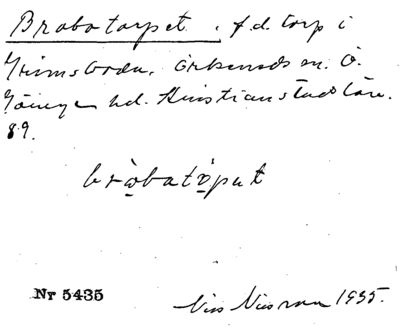 Brobotorpet. f.d. torp i
Grimsboda, Örkeneds sn. Ö.
Göinge hd. Kristianstads län.
89.
bròbatò̱put
Nr 5435
Nils Nilsson 1935.